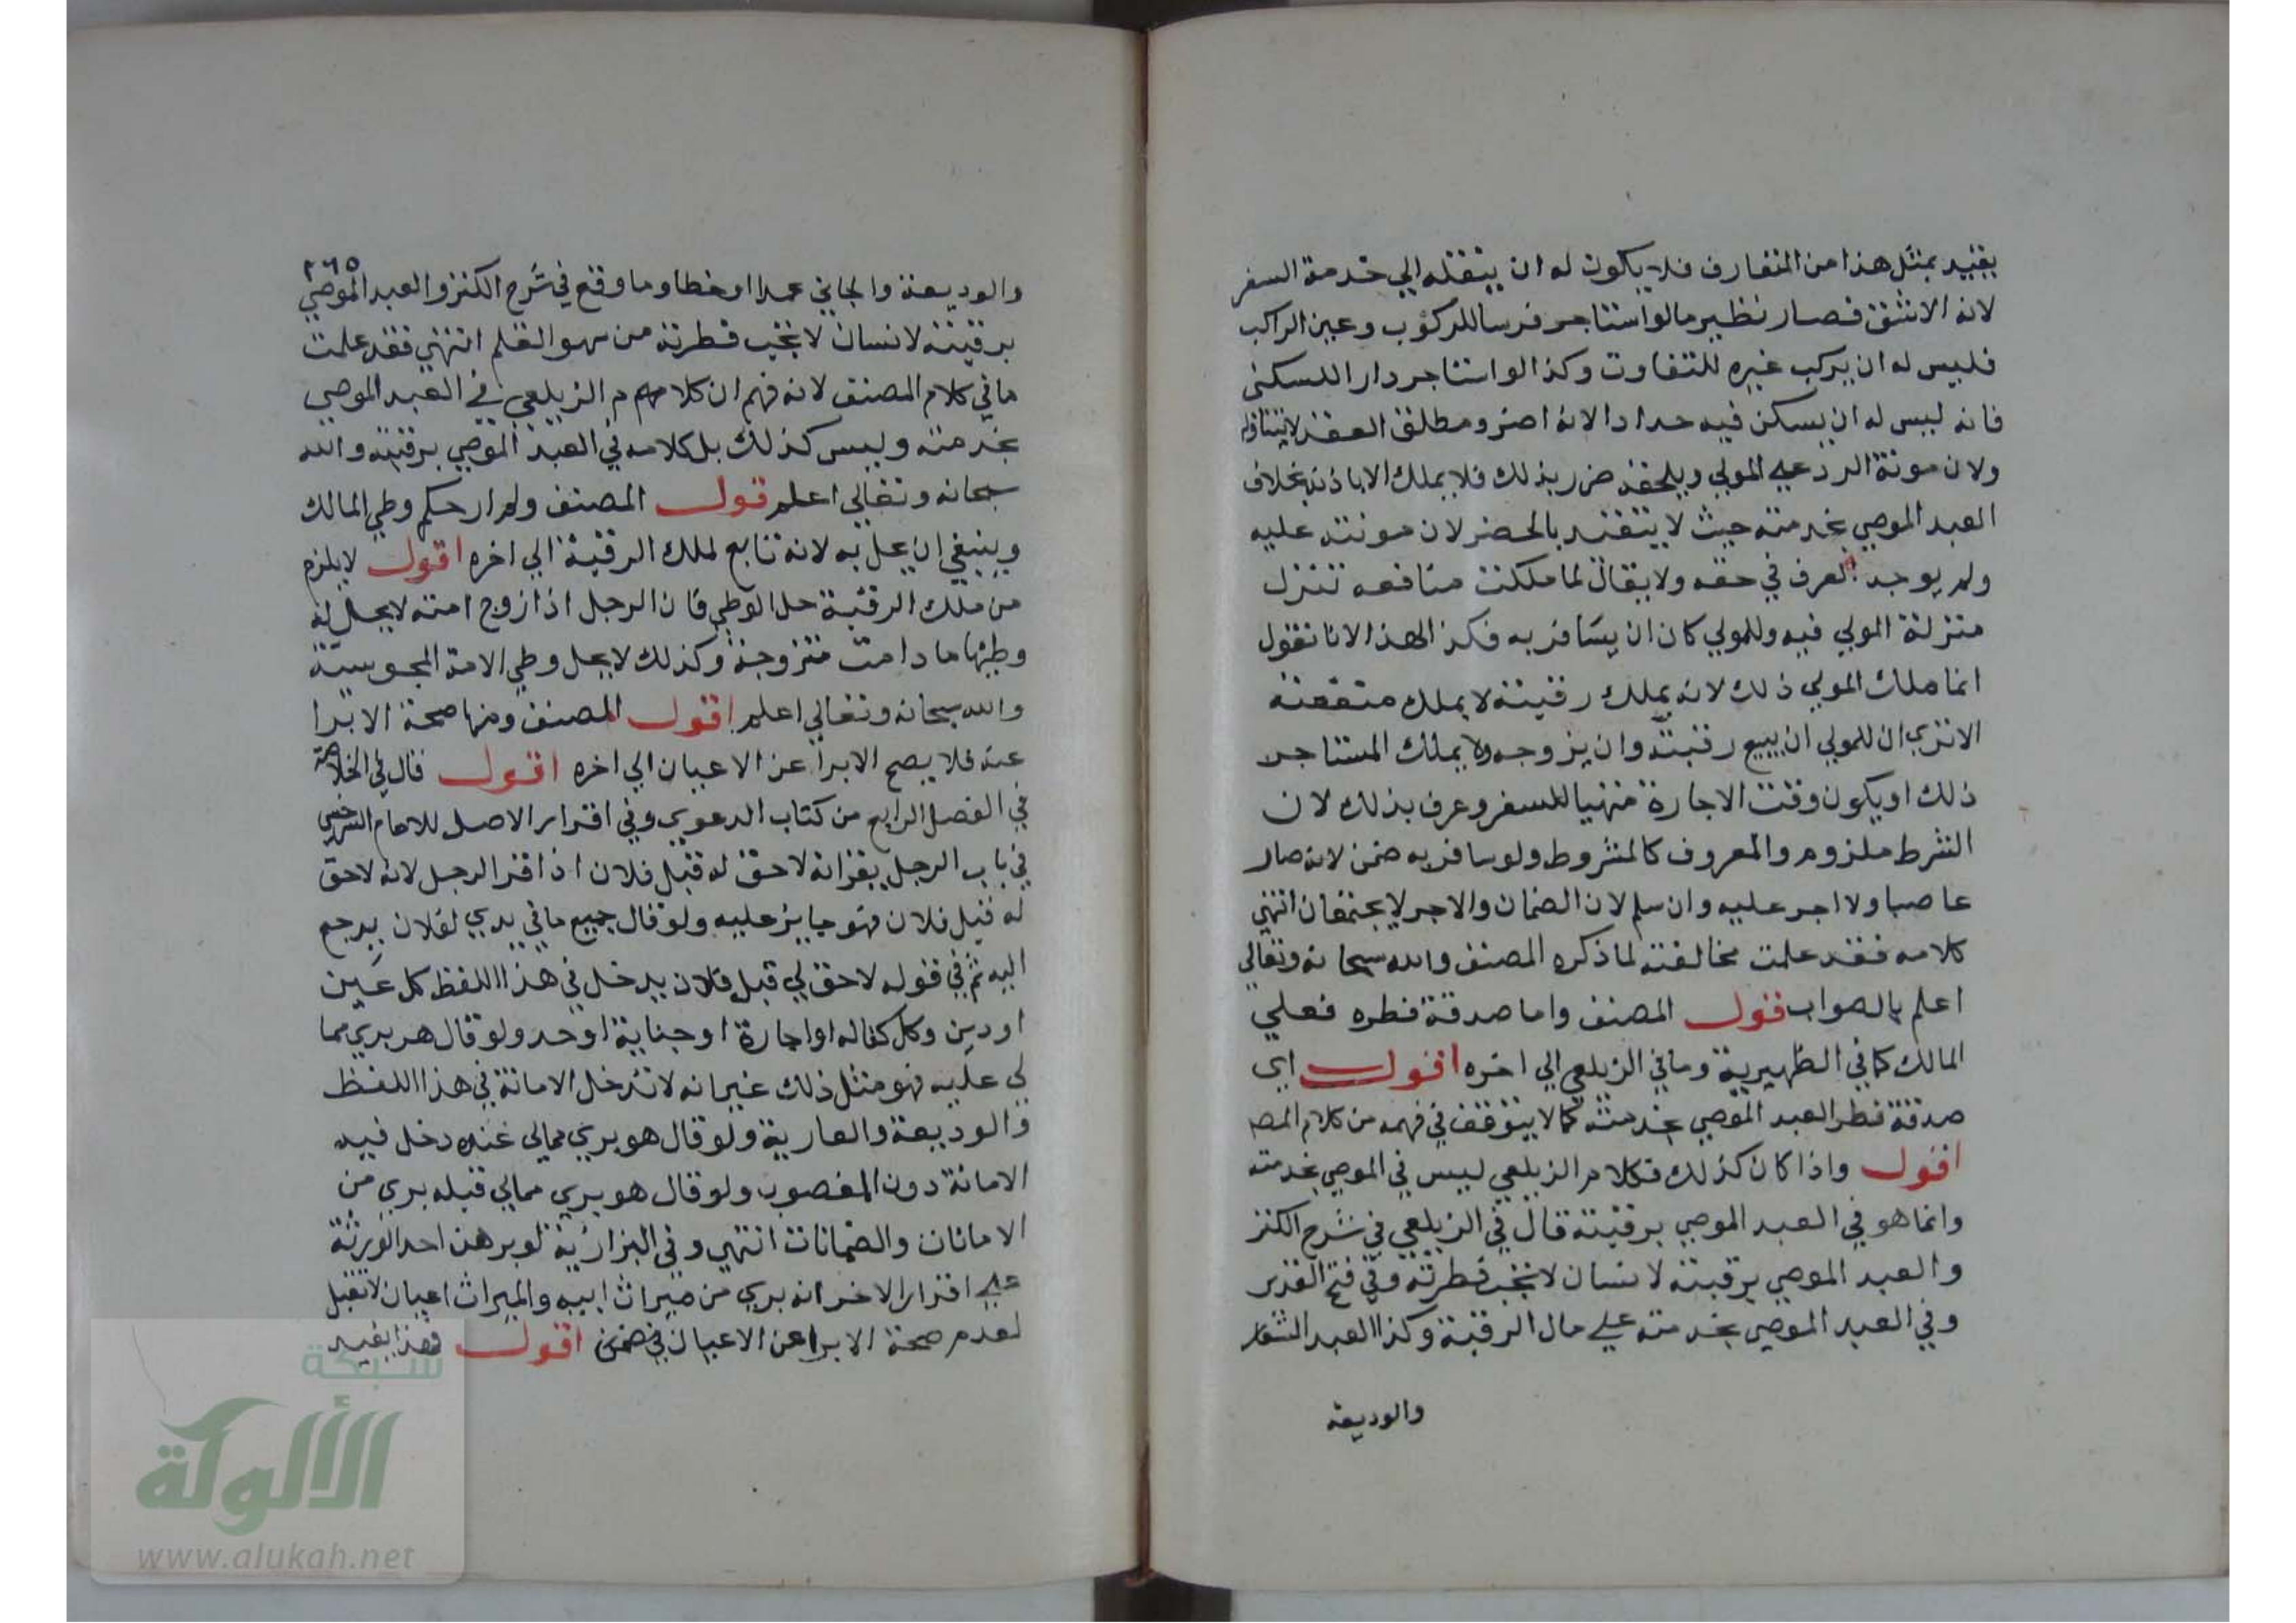 يقيد بمثل هذا من المتعارف فلا يكون له ان ينقله الي خدمة السفر
لانه الاشق فصار نظير ما لو استاجر فرسا للركوب وعين الراكب
فليس له ان يركب غيره للتفاوت وكذا لو استاجر دارا للسكني
فانه ليس له ان يسكن فيه حدادا لانه اضر ومطلق العقد لا يتناوله
ولان مونة الرد علي المولي ويلحقه ضرر بذلك فلا يملك الا باذنه بخلاف
العبد الموصي بخدمته حيث لا يتقيد بالحضر لان مونته عليه
ولم يوجد العرف في حقه ولا يقال لما ملكت منافعه تنزل
منزلة المولي فيه وللمولي كان ان يسافر به فكذا لهذا لانا نقول
انما ملك المولي ذلك لانه يملك رقبته لا يملك منفعته
الا تري ان للمولي ان يبيع رقبته وان يزوجه ولا يملك المستاجر
ذلك او يكون وقت الاجارة متهيا للسفر وعرف بذلك لان
الشرط ملزوم والمعروف كالمشروط ولو سافر به ضمن لانه صار
غاصبا ولا اجر عليه وان سلم لان الضمان والاجر لا يجتمعان انتهي
كلامه فقد علمت مخالفته لما ذكره المصنف والله سبحانه وتعالي
اعلم بالصواب قول المصنف واما صدقة فطره فعلي
المالك كما في الظهيرية وما في الزيلعي الي اخره اقول اي
صدقة فطر العبد الموصي بخدمته كما لا يتوقف في فهمه من كلام المص
اقول واذا كان كذلك فكلام الزيلعي ليس في الموصي بخدمته
وانما هو في العبد الموصي برقبته قال في الزيلعي في شرح الكنز
والعبد الموصي برقبته لانسان لا تجب فطرته وفي فتح القدير
وفي العبد الموصي بخدمته علي مال الرقبة وكذا العبد المستعار
والوديعة
٢٦٥
والوديعة والجاني عمدا او خطا وما وقع في شرح الكنز والعبد الموصي
برقبته لانسان لا تجب فطرته من سهو القلم انتهي فقد علمت
ما في كلام المصنف لانه فهم ان كلام الزيلعي في العبد الموصي
بخدمته وليس كذلك بل كلامه في العبد الموصي برقبته والله
سبحانه وتعالي اعلم قول المصنف ولم ار حكم وطي المالك
وينبغي ان يحل به لانه تابع لملك الرقبة الي اخره اقول لا يلزم
من ملك الرقبة حل الوطي فان الرجل اذا زوج امته لا يحل له
وطيها ما دامت متزوجة وكذلك لا يحل وطي الامة المجوسية
والله سبحانه وتعالي اعلم اقول المصنف ومنها صحة الابرا
عنه فلا يصح الابرا عن الاعيان الي اخره اقول قال في الخلاصة
في الفصل الرابع من كتاب الدعوي وفي اقرار الاصل للامام السرخسي
في باب الرجل يقر انه لا حق له قبل فلان اذا اقر الرجل لانه لا حق
له قبل فلان فهو جايز عليه ولو قال جميع ما في يدي لفلان يرجع
اليه ثم في قوله لا حق لي قبل فلان يدخل في هذا اللفظ كل عين
او دين وكل كفاله او اجارة او جناية او حد ولو قال هو بري مما
لي عليه فهو مثل ذلك غير انه لا تدخل الامانة في هذا اللفظ
والوديعة والعارية ولو قال هو بري ممالي عنده دخل فيه
الامانة دون المغصوب ولو قال هو بري ممالي قبله بري من
الامانات والضمانات انتهي وفي البزازية لو برهن احد الورثة
علي اقرار الاخر انه بري من ميراث ابيه والميراث اعيان لا تقبل
لعدم صحة الابرا عن الاعيان في ضمن اقول فهذا يفيد
شبكة
الألوكة
www.alukah.net